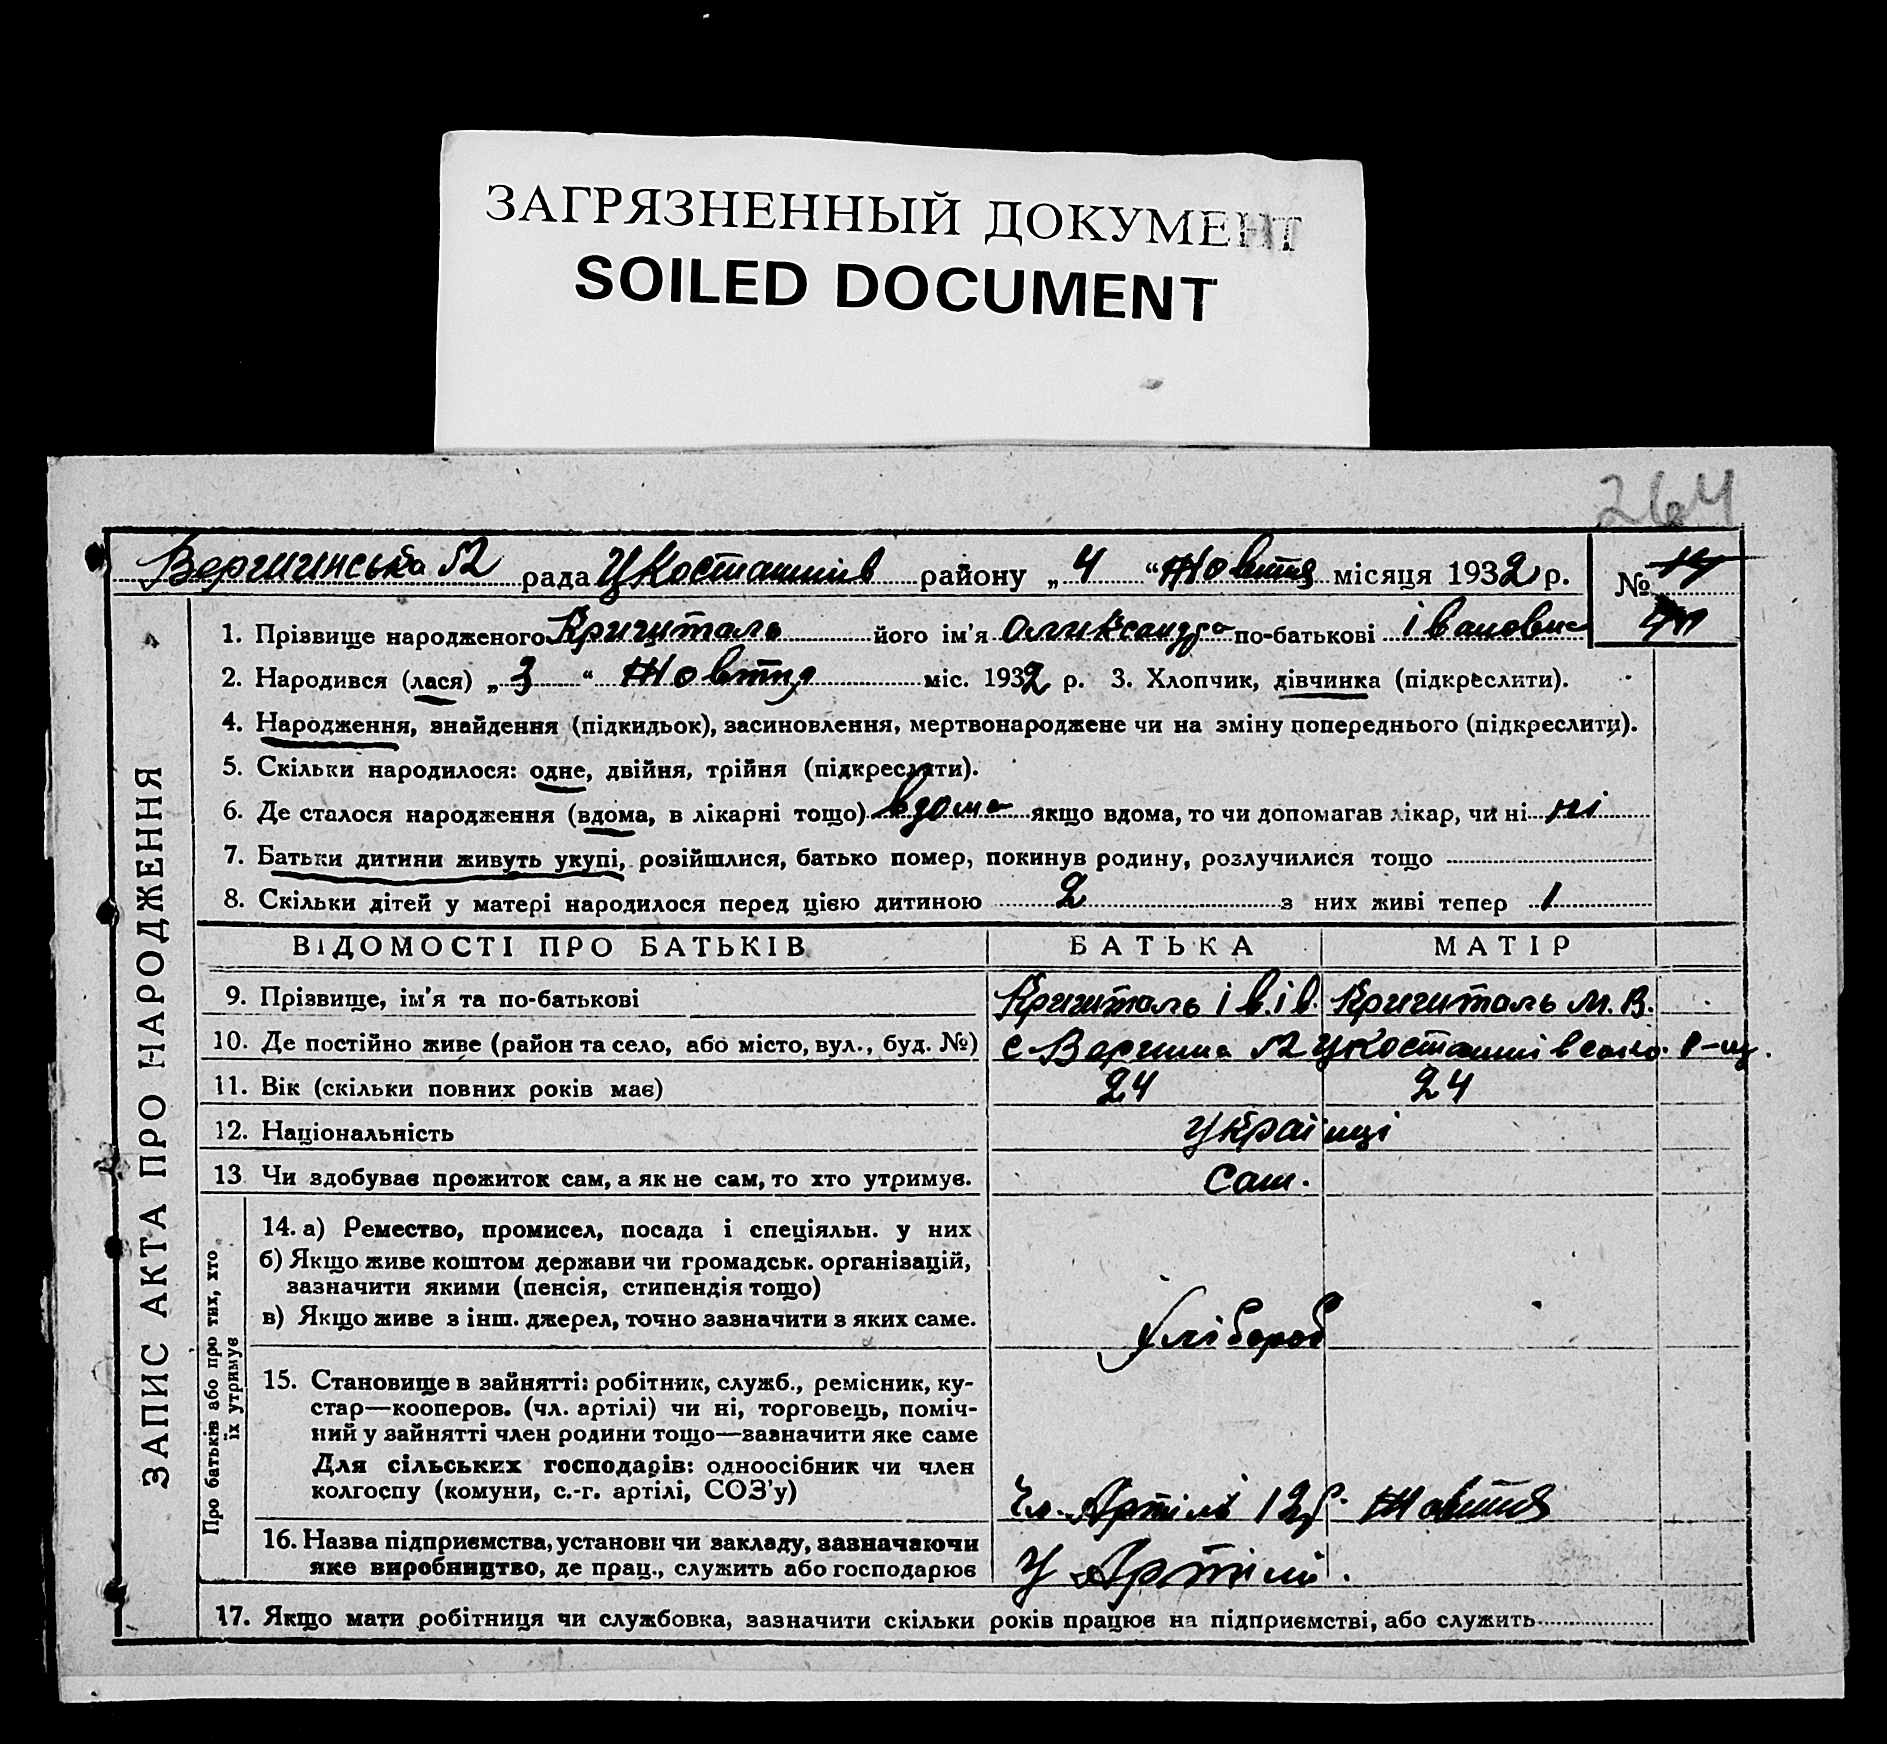 ЗАГРЯЗНЕННЫЙ ДОКУМЕНТ
SOILED DOCUMENT
264
Вершинська №2 рада Чкосташнів району „ 4 “ Жовтня місяця 1932 р. №
1. Прізвище народженого його ім'я Олександра по-батькові Івановна
2. Народився (лася) „ 3 “ Жовтня міс. 1932 р. 3. Хлопчик, дівчинка (підкреслити).
4. Народження, знайдення (підкидьок), засиновлення, мертвонароджене чи на зміну попереднього (підкреслити).
5. Скільки народилося: одне, двійня, трійня (підкреслити).
6. Де сталося народження (вдома, в лікарні тощо) вдома якщо вдома, то чи допомагав лікар, чи ні ні
7. Батьки дитини живуть укупі, розійшлися, батько помер, покинув родину, розлучилися тощо
8. Скільки дітей у матері народилося перед цією дитиною 2 з них живі тепер 1
ВІДОМОСТІ ПРО БАТЬКІВ БАТЬКА МАТІР
9. Прізвище, ім'я та по-батькові Ів. Ів. М. В.
10. Де постійно живе (район та село, або місто, вул., буд. №) с Вершина №2
11. Вік (скільки повних років має) 24 24
12. Національність Українці
13 Чи здобуває прожиток сам, а як не сам, то хто утримує. Сам.
14. а) Ремество, промисел, посада і спеціяльн. у них
б) Якщо живе коштом держави чи громадськ. організацій,
зазначити якими (пенсія, стипендія тощо)
в) Якщо живе з інш. джерел, точно зазначити з яких саме. Хлібороб
15. Становище в зайнятті: робітник, служб., ремісник, ку-
стар—кооперов. (чл. артілі) чи ні, торговець, поміч-
ний у зайнятті член родини тощо—зазначити яке саме
Для сільських господарів: одноосібник чи член
колгоспу (комуни, с.-г. артілі, СОЗ'у) чл. Артілі 12 р. Жовтня
16. Назва підприємства, установи чи закладу, зазначаючи
яке виробництво, де прац., служить або господарює У Артілі.
17. Якщо мати робітниця чи службовка, зазначити скільки років працює на підприємстві, або служить
ЗАПИС АКТА ПРО НАРОДЖЕННЯ
Про батьків або про тих, хто
їх утримує